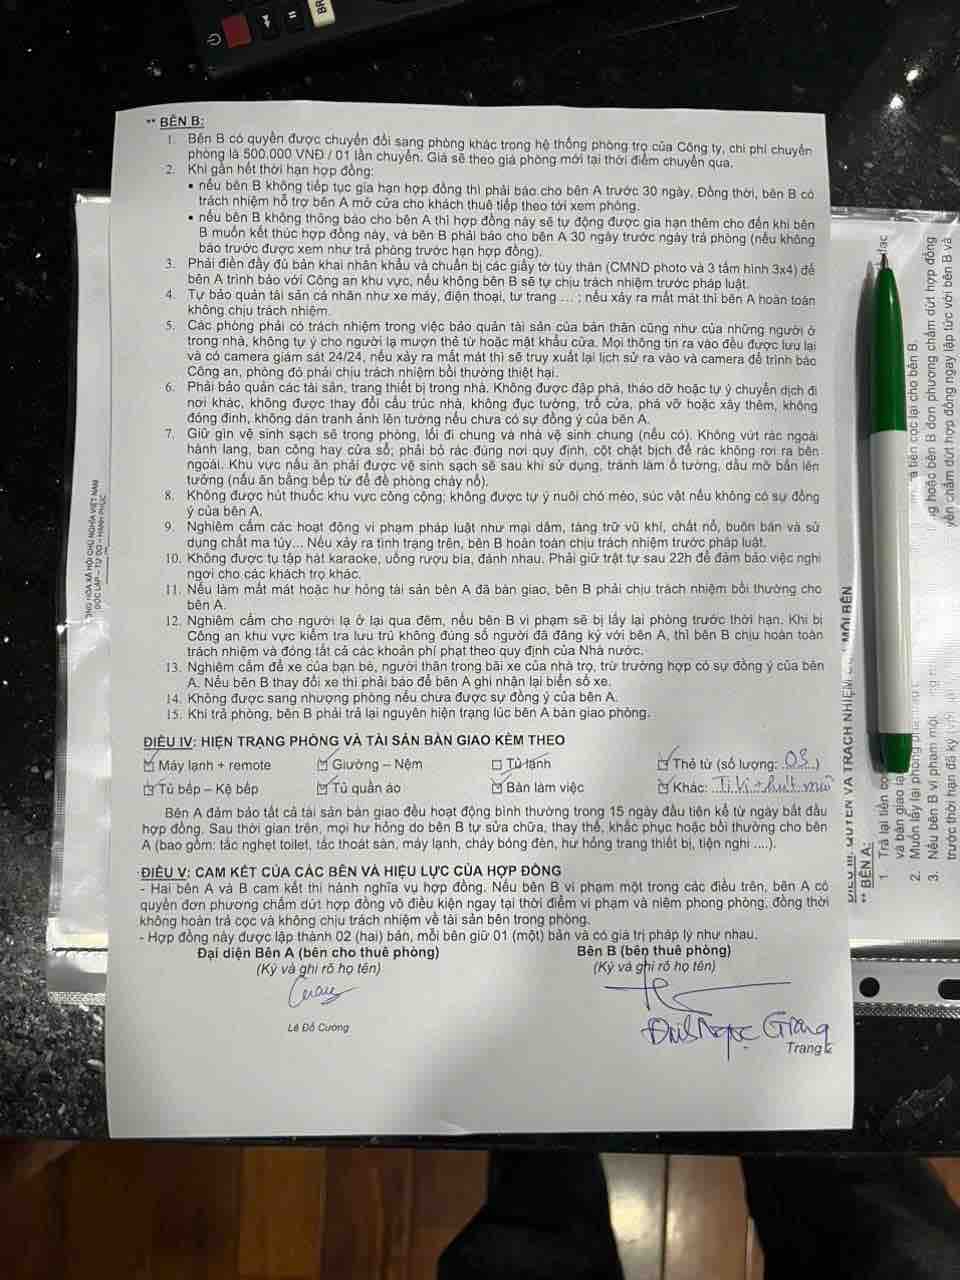 ** BÊN B:
1. Bên B có quyền được chuyển đổi sang phòng khác trong hệ thống phòng trọ của Công ty, chi phí chuyển
phòng là 500.000 VNĐ / 01 lần chuyển. Giá sẽ theo giá phòng mới tại thời điểm chuyển qua.
2. Khi gần hết thời hạn hợp đồng:
▪ nếu bên B không tiếp tục gia hạn hợp đồng thì phải báo cho bên A trước 30 ngày. Đồng thời, bên B có
trách nhiệm hỗ trợ bên A mở cửa cho khách thuê tiếp theo tới xem phòng.
▪ nếu bên B không thông báo cho bên A thì hợp đồng này sẽ tự động được gia hạn thêm cho đến khi bên
B muốn kết thúc hợp đồng này, và bên B phải báo cho bên A 30 ngày trước ngày trả phòng (nếu không
báo trước được xem như trả phòng trước hạn hợp đồng).
3. Phải điền đầy đủ bản khai nhân khẩu và chuẩn bị các giấy tờ tùy thân (CMND photo và 3 tấm hình 3x4) để
bên A trình báo với Công an khu vực, nếu không bên B sẽ tự chịu trách nhiệm trước pháp luật.
4. Tự bảo quản tài sản cá nhân như xe máy, điện thoại, tư trang ... ; nếu xảy ra mất mát thì bên A hoàn toàn
không chịu trách nhiệm.
5. Các phòng phải có trách nhiệm trong việc bảo quản tài sản của bản thân cũng như của những người ở
trong nhà, không tự ý cho người lạ mượn thẻ từ hoặc mật khẩu cửa. Mọi thông tin ra vào đều được lưu lại
và có camera giám sát 24/24, nếu xảy ra mất mát thì sẽ truy xuất lại lịch sử ra vào và camera để trình báo
Công an, phòng đó phải chịu trách nhiệm bồi thường thiệt hại.
6. Phải bảo quản các tài sản, trang thiết bị trong nhà. Không được đập phá, tháo dỡ hoặc tự ý chuyển dịch đi
nơi khác, không được thay đổi cấu trúc nhà, không đục tường, trổ cửa, phá vỡ hoặc xây thêm, không
đóng đinh, không dán tranh ảnh lên tường nếu chưa có sự đồng ý của bên A.
7. Giữ gìn vệ sinh sạch sẽ trong phòng, lối đi chung và nhà vệ sinh chung (nếu có). Không vứt rác ngoài
hành lang, ban công hay cửa sổ; phải bỏ rác đúng nơi quy định, cột chặt bịch để rác không rơi ra bên
ngoài. Khu vực nấu ăn phải được vệ sinh sạch sẽ sau khi sử dụng, tránh làm ố tường, dầu mỡ bắn lên
tường (nấu ăn bằng bếp từ để đề phòng cháy nổ).
8. Không được hút thuốc khu vực công cộng; không được tự ý nuôi chó mèo, súc vật nếu không có sự đồng
ý của bên A.
9. Nghiêm cấm các hoạt động vi phạm pháp luật như mại dâm, tàng trữ vũ khí, chất nổ, buôn bán và sử
dụng chất ma túy... Nếu xảy ra tình trạng trên, bên B hoàn toàn chịu trách nhiệm trước pháp luật.
10. Không được tụ tập hát karaoke, uống rượu bia, đánh nhau. Phải giữ trật tự sau 22h để đảm bảo việc nghỉ
ngơi cho các khách trọ khác.
11. Nếu làm mất mát hoặc hư hỏng tài sản bên A đã bàn giao, bên B phải chịu trách nhiệm bồi thường cho
bên A.
12. Nghiêm cấm cho người lạ ở lại qua đêm, nếu bên B vi phạm sẽ bị lấy lại phòng trước thời hạn. Khi bị
Công an khu vực kiểm tra lưu trú không đúng số người đã đăng ký với bên A, thì bên B chịu hoàn toàn
trách nhiệm và đóng tất cả các khoản phí phạt theo quy định của Nhà nước.
13. Nghiêm cấm để xe của bạn bè, người thân trong bãi xe của nhà trọ, trừ trường hợp có sự đồng ý của bên
A. Nếu bên B thay đổi xe thì phải báo để bên A ghi nhận lại biển số xe.
14. Không được sang nhượng phòng nếu chưa được sự đồng ý của bên A.
15. Khi trả phòng, bên B phải trả lại nguyên hiện trạng lúc bên A bàn giao phòng.
ĐIỀU IV: HIỆN TRẠNG PHÒNG VÀ TÀI SẢN BÀN GIAO KÈM THEO
☑ Máy lạnh + remote ☑ Giường – Nệm ☐ Tủ lạnh ☑ Thẻ từ (số lượng: 03)
☑ Tủ bếp – Kệ bếp ☑ Tủ quần áo ☑ Bàn làm việc ☑ Khác: Ti Vi + hút mùi
Bên A đảm bảo tất cả tài sản bàn giao đều hoạt động bình thường trong 15 ngày đầu tiên kể từ ngày bắt đầu
hợp đồng. Sau thời gian trên, mọi hư hỏng do bên B tự sửa chữa, thay thế, khắc phục hoặc bồi thường cho bên
A (bao gồm: tắc nghẹt toilet, tắc thoát sàn, máy lạnh, cháy bóng đèn, hư hỏng trang thiết bị, tiện nghi ....).
ĐIỀU V: CAM KẾT CỦA CÁC BÊN VÀ HIỆU LỰC CỦA HỢP ĐỒNG
- Hai bên A và B cam kết thi hành nghĩa vụ hợp đồng. Nếu bên B vi phạm một trong các điều trên, bên A có
quyền đơn phương chấm dứt hợp đồng vô điều kiện ngay tại thời điểm vi phạm và niêm phong phòng, đồng thời
không hoàn trả cọc và không chịu trách nhiệm về tài sản bên trong phòng.
- Hợp đồng này được lập thành 02 (hai) bản, mỗi bên giữ 01 (một) bản và có giá trị pháp lý như nhau.
Đại diện Bên A (bên cho thuê phòng) Bên B (bên thuê phòng)
(Ký và ghi rõ họ tên) (Ký và ghi rõ họ tên)
Cuong
Lê Đỗ Cường
Đinh Ngọc Giang
Trang
CỘNG HÒA XÃ HỘI CHỦ NGHĨA VIỆT NAM
ĐỘC LẬP – TỰ DO – HẠNH PHÚC
QUYỀN VÀ TRÁCH NHIỆM MỖI BÊN
** BÊN A:
1. Trả lại tiền cọc
và bàn giao lại
2. Muốn lấy lại phòng
tiền cọc lại cho bên B.
3. Nếu bên B vi phạm một
hoặc bên B đơn phương chấm dứt hợp đồng
trước thời hạn đã ký
chấm dứt hợp đồng ngay lập tức với bên B và